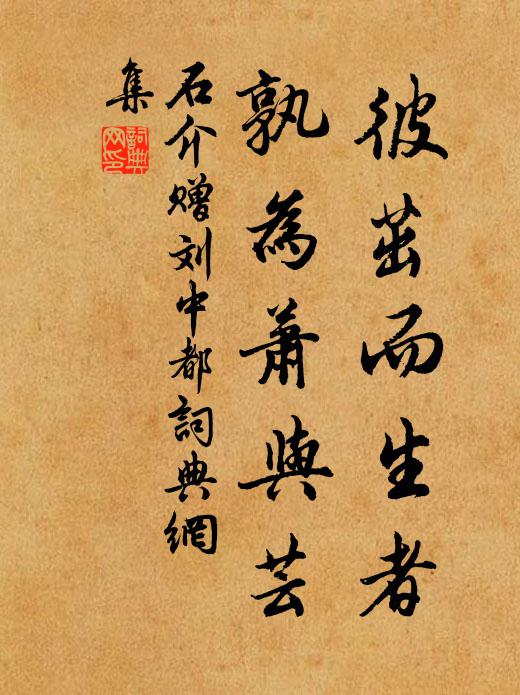 彼茁而生者
孰為蕭與芸
石介赠刘中都詞典網
集
詞典
网印